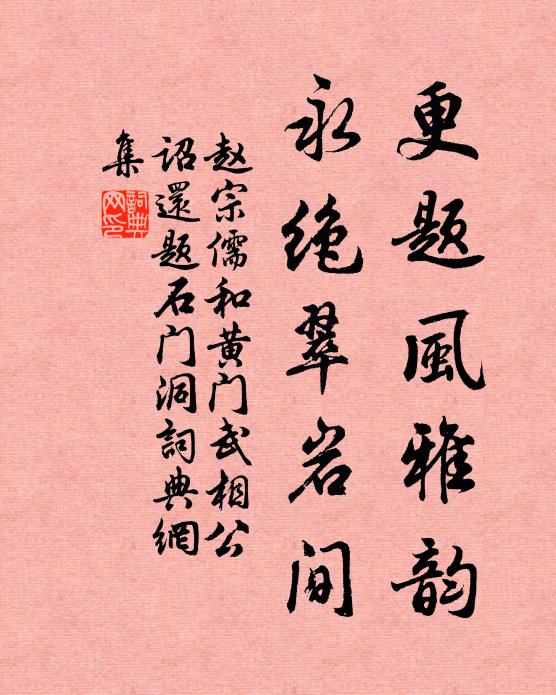 更题風雅韵
永绝翠岩间
赵宗儒和黄门武相公
诏還题石门洞詞典網
集
詞典网印